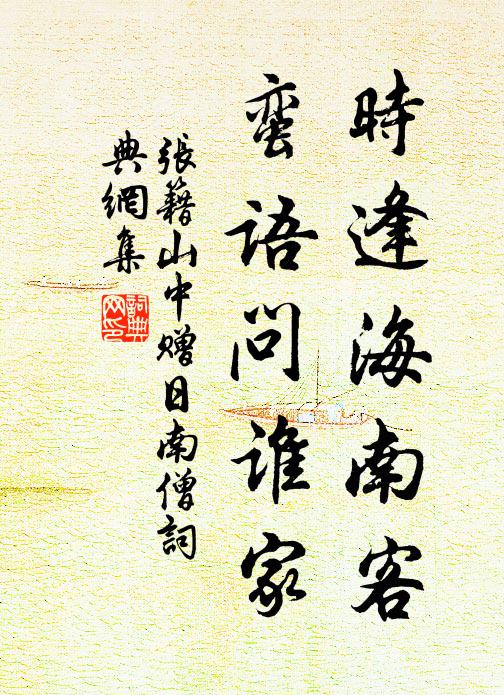 時逢海南客
蛮語問誰家
張籍山中贈日南僧詞
典網集
詞典
网印